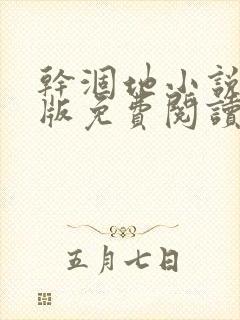 幹涸地小說
版免費閱讀
五月七日